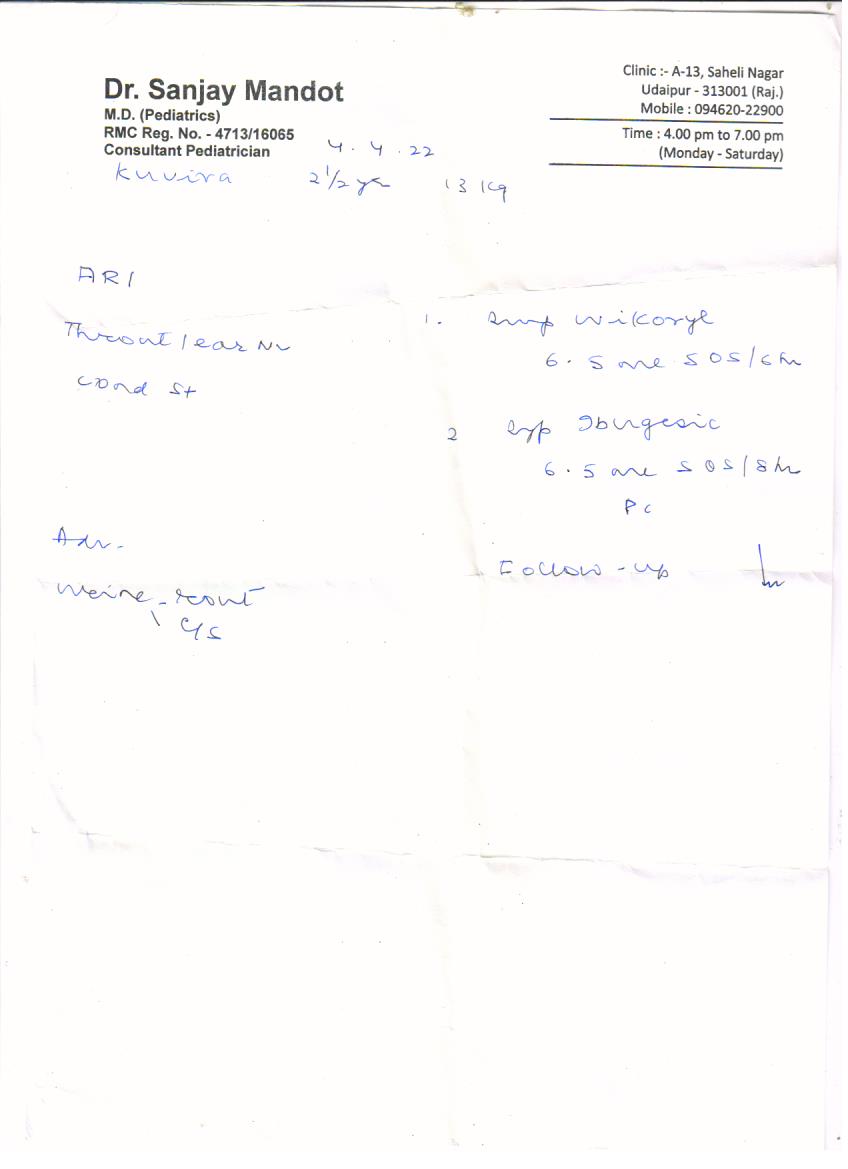 Dr. Sanjay Mandot
M.D. (Pediatrics)
RMC Reg. No. - 4713/16065
Consultant Pediatrician
Clinic :- A-13, Saheli Nagar
Udaipur - 313001 (Raj.)
Mobile : 094620-22900
Time : 4.00 pm to 7.00 pm
(Monday - Saturday)
4. 4. 22
Kuvira 2 1/2 yr 13 Kg
ARI
Throat / ear
1. Wikoryl
6.5 SOS/6 hr
2 Syp Ibugesic
6.5 SOS/8 hr
PC
Adv-
C/S
Follow-up